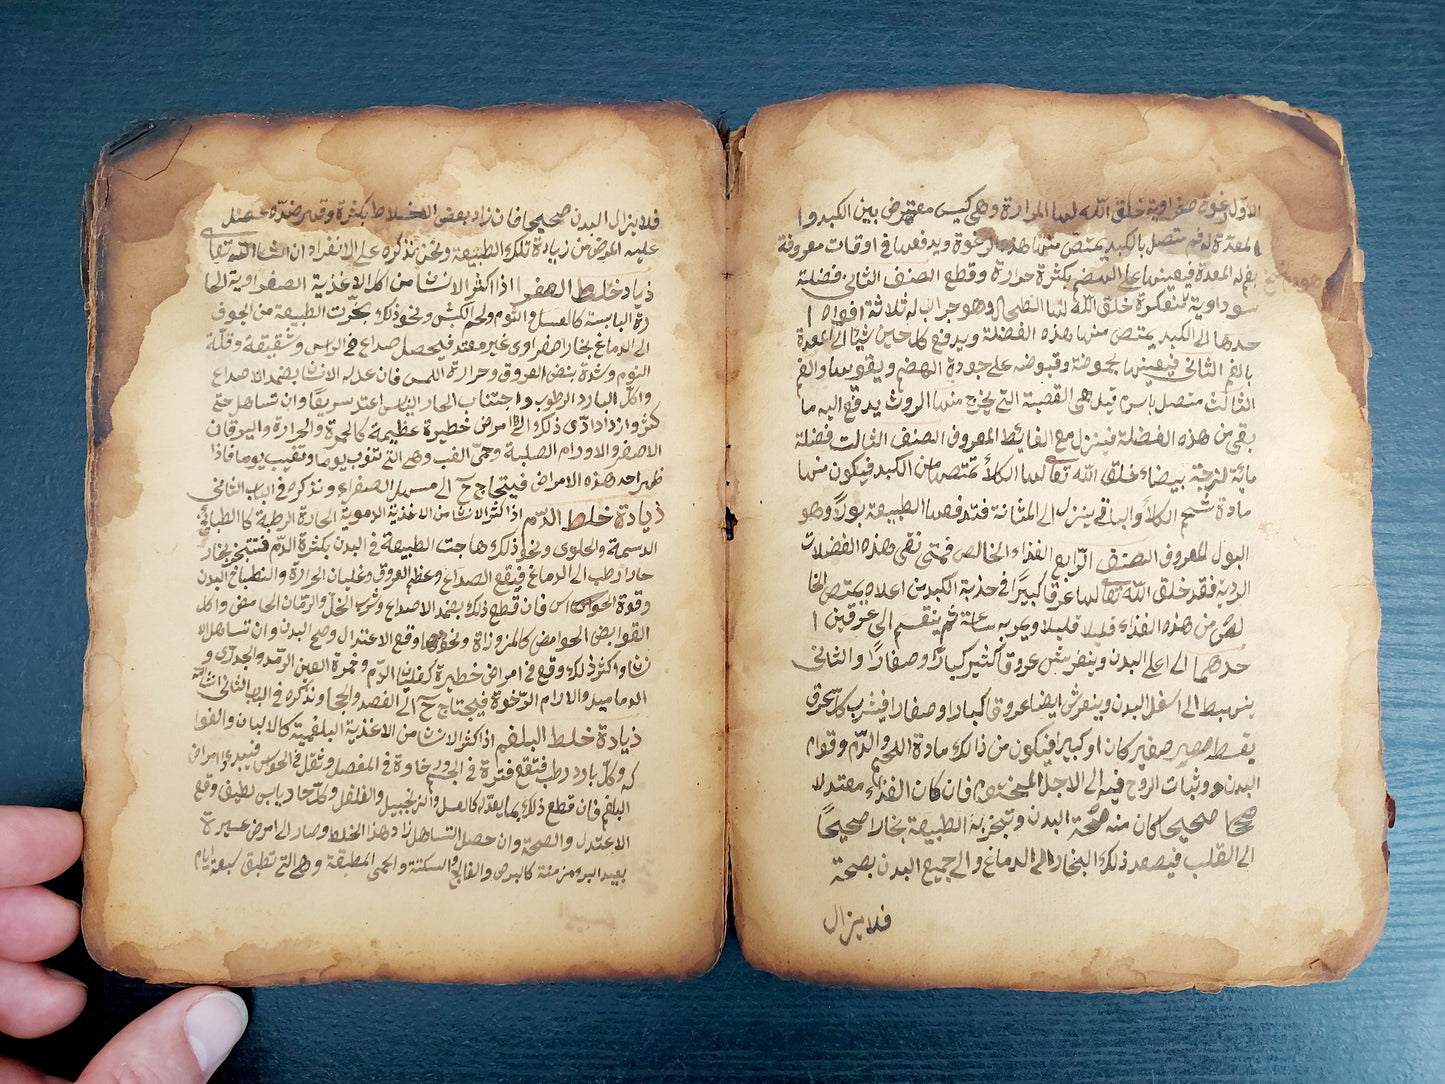 الاول رغوة صفراوية خلق الله لها المرارة وهي كيس معترض بين الكبد وا
لمعدة له فم متصل بالكبد يمتص منها هذه الرغوة ويدفعها في اوقات معروفة
لفم المعدة فيعينها على الهضم بكثرة حرارة وقطع الصنف الثاني فضلة
سوداوية متعكرة خلق الله لها الطحال وهو جراب له ثلاثة افواه ا
حدها الى الكبد يمتص منها هذه الفضلة ويدفع كل حين شيئا الى المعدة
بالفم الثاني فيعينها بحموضة وقبوضه على جودة الهضم ويقويها والفم
الثالث متصل باسرم قيل هي القصبة التي يخرج منها الروث يدفع اليه ما
بقي من هذه الفضلة فينزل مع الغائط المعروف الصنف الثالث فضلة
مائية لزجة بيضاء خلق الله تعا لها الكلا تمتصها من الكبد فيكون منها
مادة شحم الكلا والباقي ينزل الى المثانة فتدفعها الطبيعة بولا وهو
البول المعروف الصنف الرابع الغذاء الخالص فمتى نقي وهذه الفضلات
الردية فقد خلق الله تعا لها عرقا كبيرا في حدبة الكبد من اعلاه يمتص الخا
لص من هذه الغذاء قليلا قليلا ويجريه ساعة ثم ينقسم الى عرقين ا
حدهما الى اعلى البدن وينفرش عروق كثير كبارا وصغارا والثاني
ينهبط الى اسفل البدن وينفرش ايضا عروقا كبارا وصغارا فيشرب كل عرق
بقسطه صغير كان او كبيرا فيكون من ذالك مادة اللحم والدم وقوام
البدن وثبات الروح فيه الى الاجل المحتوم فان كان الغذاء معتدلا
صحيحا كان منه صحة البدن وتبخر به الطبيعة بخارا صحيحا
الى القلب فيصعد ذلك البخار الى الدماغ والى جميع البدن بصحة
فلا يزال
فلا يزال البدن صحيحا فان زاد بعض الاخلاط بكثرة وقهر ضده حصل
عليه المرض من زيادة تلك الطبيعة ونحن نذكره على الانفراد ان شا الله تعا
زيادة خلط الصفرا اذا كثر الانسان من اكل الاغذية الصفراوية الحا
رة اليابسة كالعسل والثوم ولحم الكبش ونحو ذلك بخرت الطبيعة من الجوف
الى الدماغ بخارا صفراوى غير معتد فيحصل صداع في الراس وشقيقة وقلة
النوم وشدة نبض العروق وحرارة اللمس فان عدله الانسان بضد الاصداع
واكل البارد الرطوب واجتناب الحار اليابس اعتدل سريعا وان تساهل حتى
كثر وازداد ادى ذلك الى امراض خطيرة عظيمة كالحمرة والحرارة واليرقان
الاصفر والاورام الصلبة وحمى الغب وهي التي تنوب يوما وتغيب يوما فاذا
ظهر احد هذه الامراض فيحتاج ح الى مسهل الصفراء ونذكره في الباب الثاني
زيادة خلط الدم اذا كثر الانسان من الاغذية الدموية الحارة الرطبة كالطبائخ
الدسمة والحلوى ونحو ذلك هاجت الطبيعة في البدن بكثرة الدم فتبخر بخار
حار رطب الى الدماغ فيقع الصداع وعظم العروق وغليان الحرارة وانطباخ البدن
وقوة الحواس فان قطع ذلك بضد الاصداع وشرب الخل والرمان الحامض واكل
القوابض الحوامض كالمزوزاة ونحوها وقع الاعتدال وصح البدن وان تساهل الا
نسان واكثر ذلك وقع في امراض خطيرة كغليان الدم وحمرة العين الرمد والجدرى و
الدماميد والاورام الرخوة فيحتاج ح الى الفصد والحجامة ونذكره في الباب الثاني ان شا الله
زيادة خلط البلغم اذا اكثر الانسان من الاغذية البلغمية كالالبان والفوا
كه وكل بارد رطب فتقع فترة في الجسم ورخاوة في المفصل وثقل في الحواس فيبدى امراض
البلغم فان قطع ذلك بما يعدله كالعسل والزنجبيل والفلفل وكل حار يابس لطيف وقع
الاعتدال والصحة وان حصل التساهل زاد هذا الخلط وصار الى امراض عسيرة
بعيد البرء مزمنة كالبرص والفالج والسكتة والحمى المطبقة وهي التي تطبق سبعة ايام